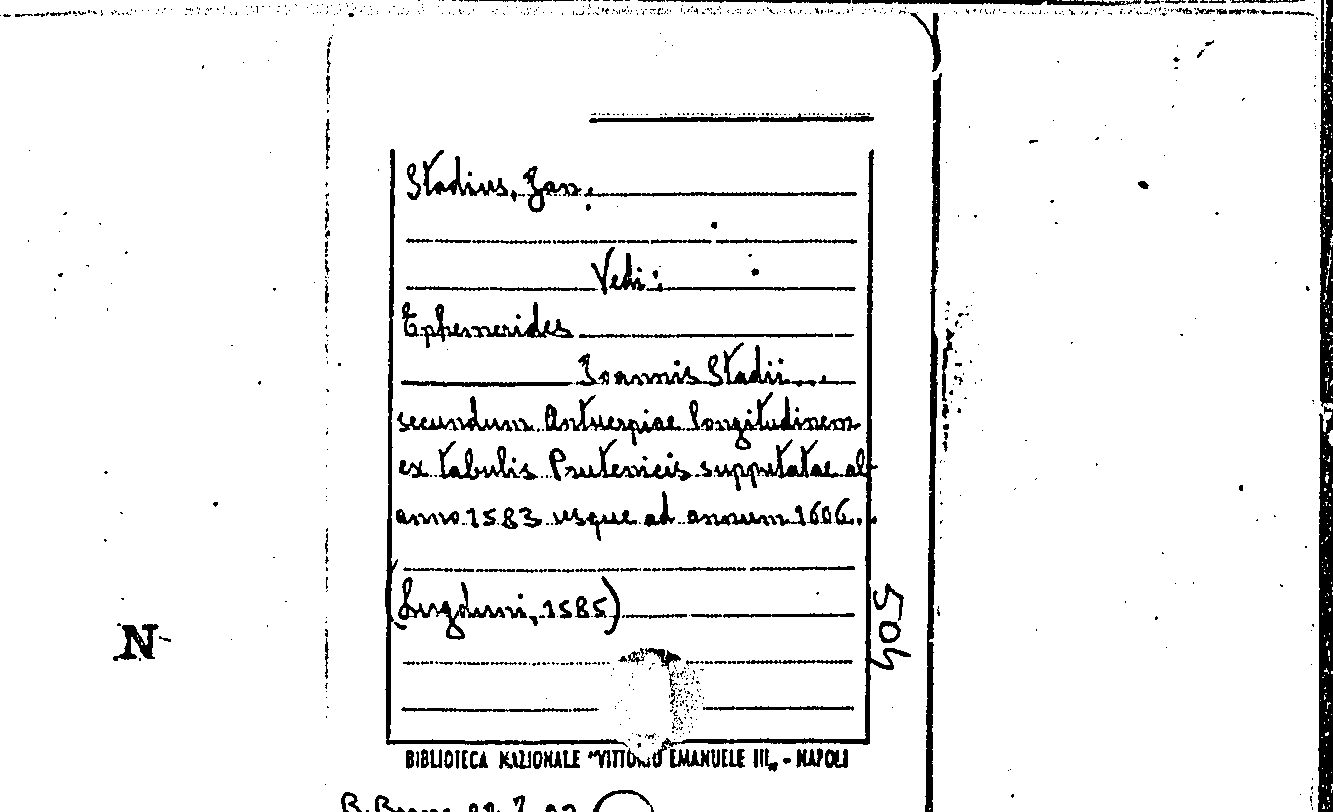 Stadius, Jan.
Vedi:
Ephemerides
Ioannis Stadii...
secundum Antuerpiae longitudinem
ex tabulis Prutenicis supputatae ab
anno 1583 usque ad annum 1606..
(Lugduni, 1585)
504
N
BIBLIOTECA NAZIONALE "VITTORIO EMANUELE III„ - NAPOLI